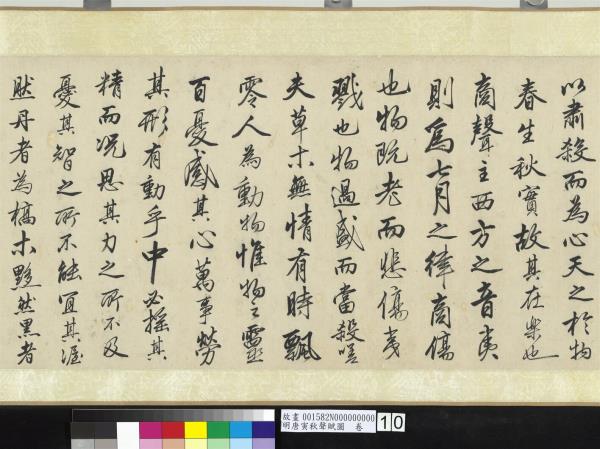 以肅殺而為心天之於物
春生秋實故其在樂也
商聲主西方之音夷
則為七月之律商傷
也物既老而悲傷夷
戮也物過盛而當殺嗟
夫草木無情有時飄
零人為動物惟物之靈
百憂感其心萬事勞
其形有動乎中必搖其
精而況思其力之所不及
憂其智之所不能宜其渥
然丹者為槁木黟然黑者
故畫 001582N000000000
明唐寅秋聲賦圖 卷
10